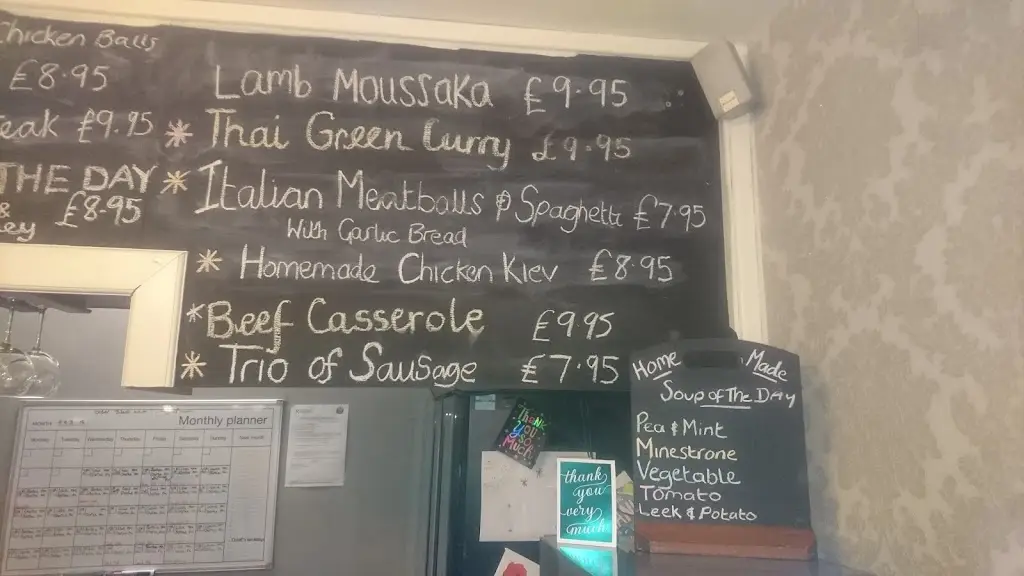 Chicken Balls
£8.95
£9.95
THE DAY
& £8.95
Lamb Moussaka £9.95
* Thai Green Curry £9.95
* Italian Meatballs & Spaghetti £7.95
With Garlic Bread
* Homemade Chicken Kiev £8.95
* Beef Casserole £9.95
* Trio of Sausage £7.95
Home Made
Soup of The Day
Pea & Mint
Minestrone
Vegetable
Tomato
Leek & Potato
Monthly planner
Thank
You
Much
thank
you
very
much